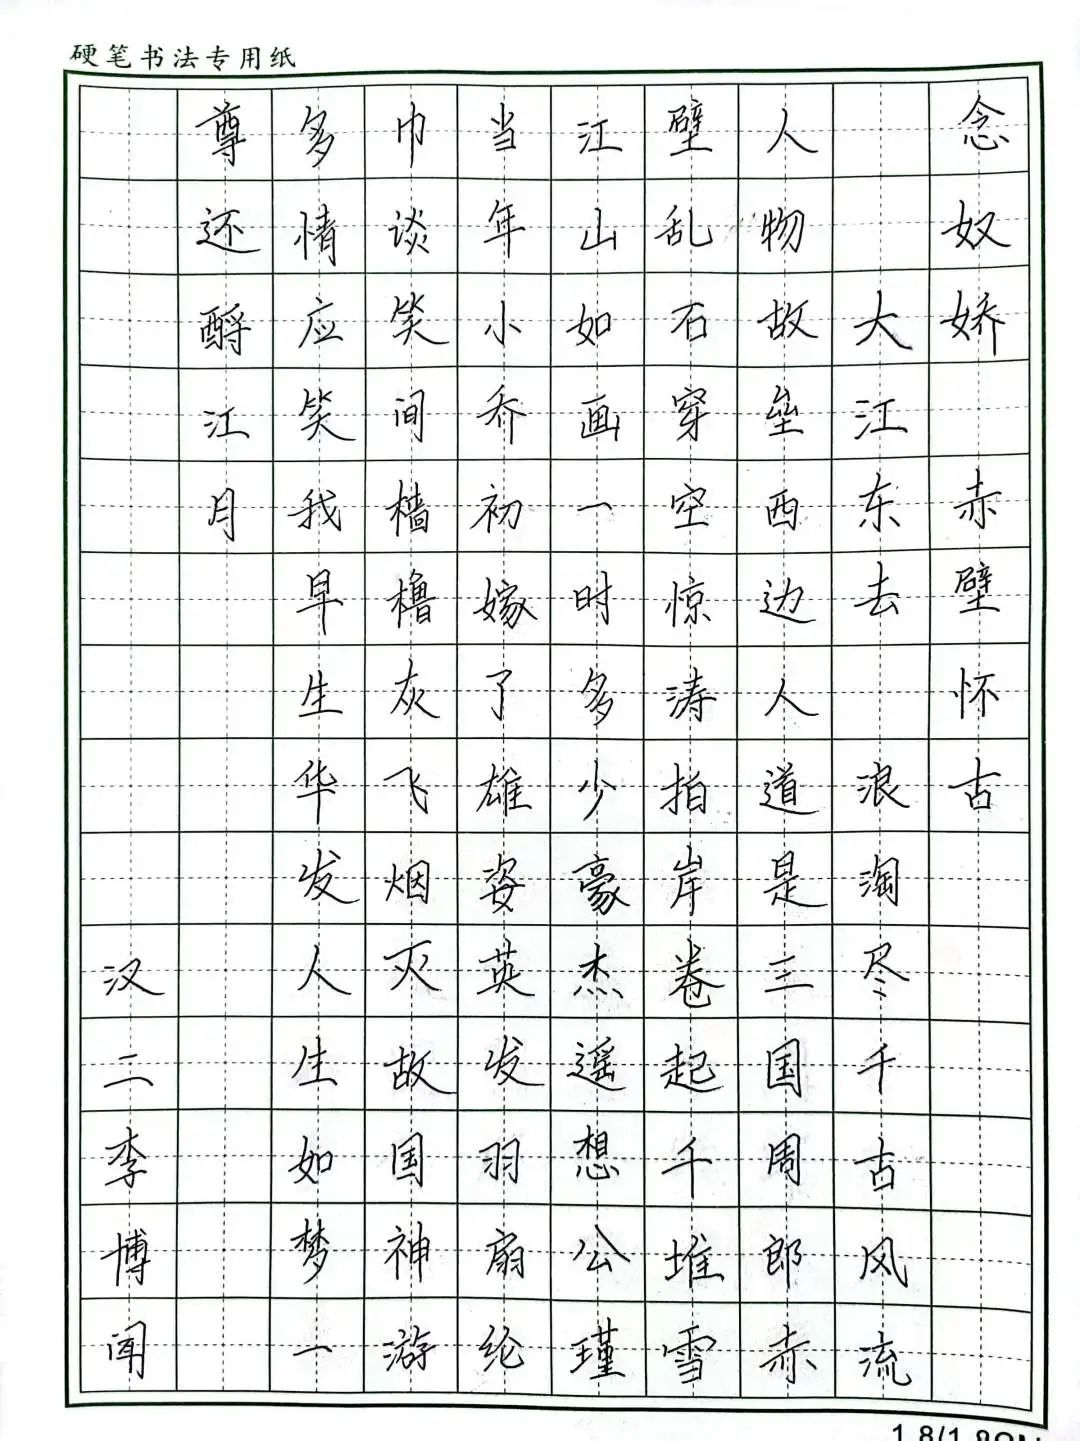 硬笔书法专用纸
念奴娇 赤壁怀古
大江东去 浪淘尽千古风流
人物 故垒西边人道是三国周郎赤
壁乱石穿空惊涛拍岸卷起千堆雪
江山如画一时多少豪杰遥想公瑾
当年小乔初嫁了雄姿英发羽扇纶
巾谈笑间樯橹灰飞烟灭故国神游
多情应笑我早生华发人生如梦一
尊还酹江月
汉二李博闻